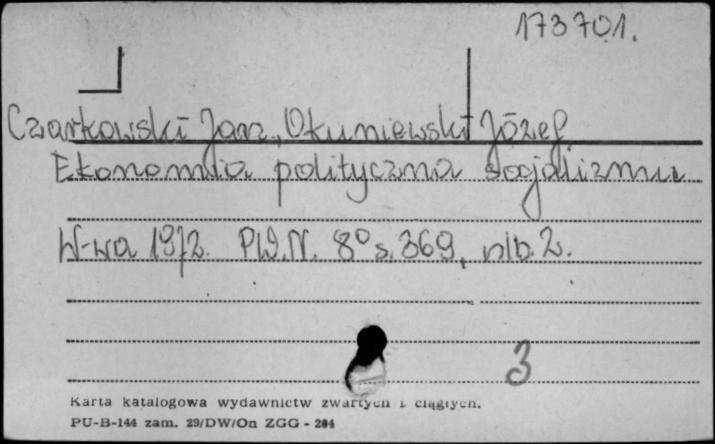 173701.
Czarkowski Jan, Okuniewski Józef
Ekonomia polityczna socjalizmu
W-wa 1972. P.W.N. 8° s. 369, nlb. 2.
3
Karta katalogowa wydawnictw zwartych i ciągłych.
PU-B-144 zam. 29/DW/On ZGG - 204